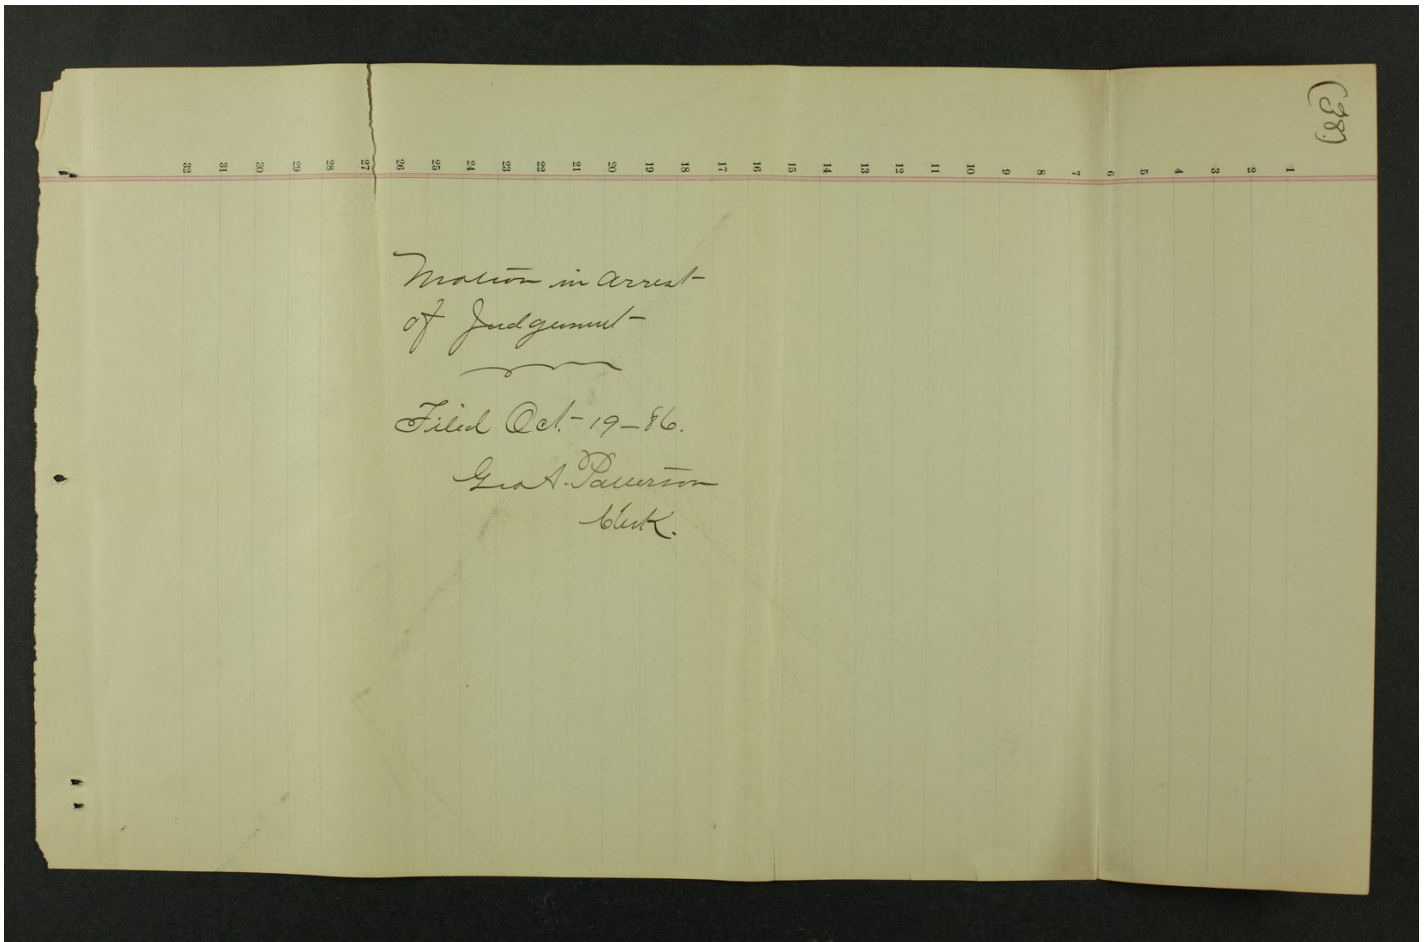 (38)
32 31 30 29 28 27 26 25 24 23 22 21 20 19 18 17 16 15 14 13 12 11 10 9 8 7 6 5 4 3 2 1
Motion in arrest
of Judgement
Filed Oct. 19-86.
Geo A. Patterson
Clerk.